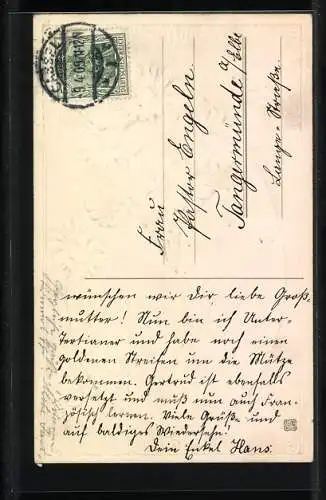 Frau
Pastor Engeln
Tangermünde a/Elbe
Lange-Straße
wünschen wir Dir, liebe Groß-
mutter! Nun bin ich Unter-
Tertianer und habe noch einen
goldenen Streifen um die Mütze
bekommen. Gertrud ist ebenfalls
versetzt und muß nun auch Fran-
zösisch lernen. Viele Grüße und
auf baldiges Wiedersehn!
Dein Enkel Hans.